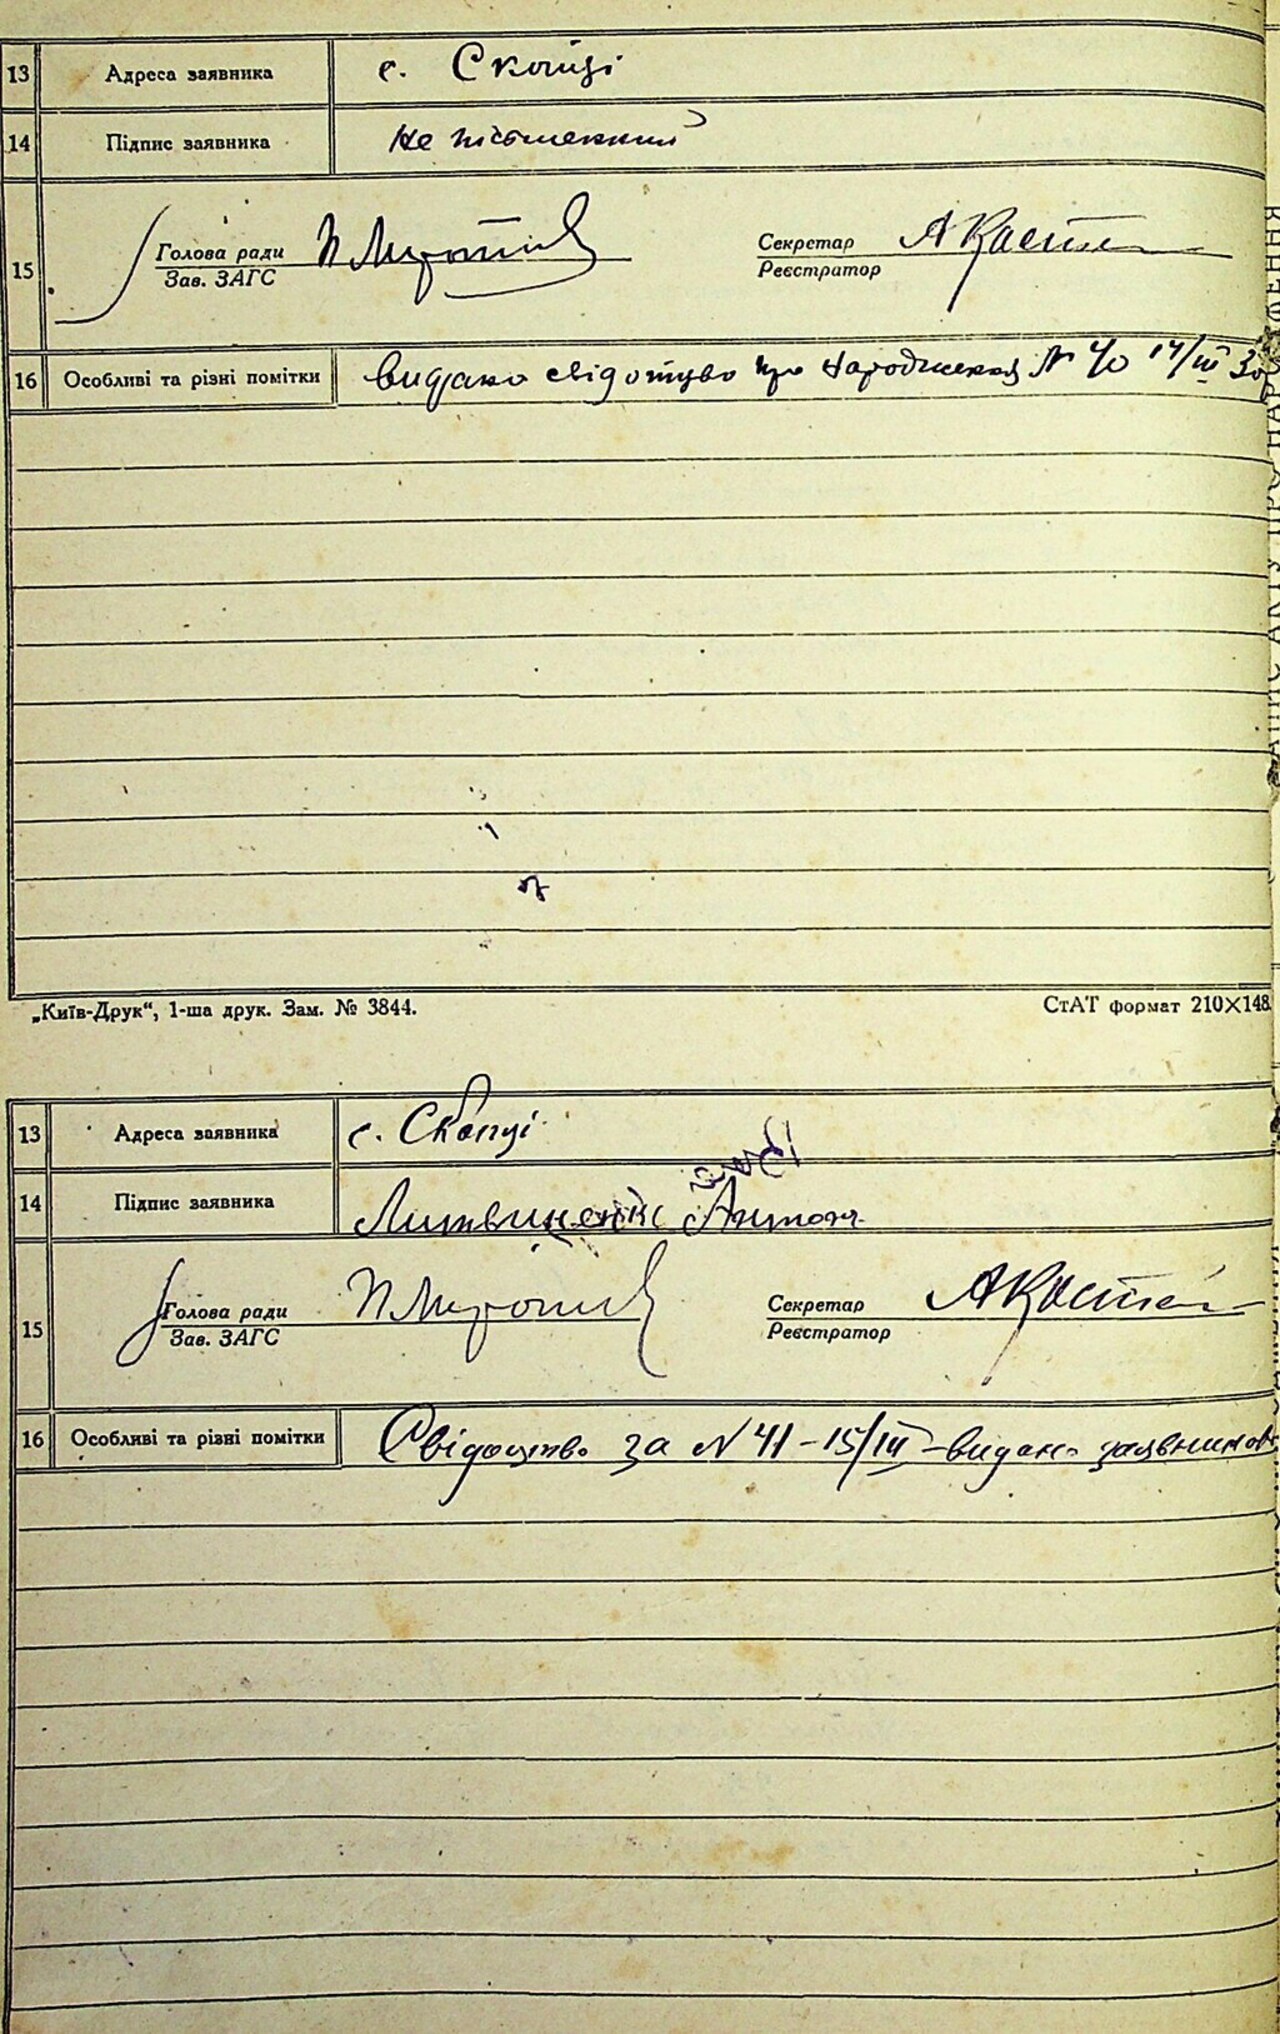 13 Адреса заявника с. Скопці
14 Підпис заявника не письменний
15 Голова ради Секретар
Зав. ЗАГС Реєстратор
16 Особливі та різні помітки видано свідотцво про народження № 40 14/III 30
„Київ-Друк“, 1-ша друк. Зам. № 3844. СтАТ формат 210×148.
13 Адреса заявника с. Скопці
14 Підпис заявника Литвиненко Антон
15 Голова ради Секретар
Зав. ЗАГС Реєстратор
16 Особливі та різні помітки Свідоцтво за N 41 – 15/III – видано заявников